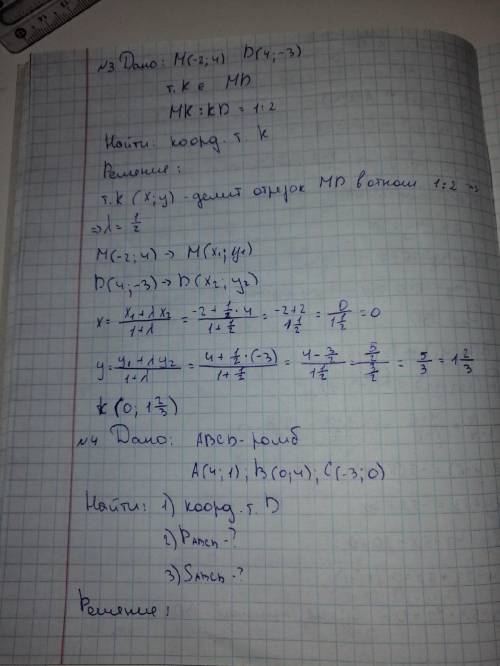 №3 Дано: M(-2; 4) D(4; -3)
т. K ∈ MD
MK : KD = 1:2
Найти: коорд. т. K
Решение:
т. K (x; y) - делит отрезок MD в отнош 1:2 =>
=> λ = 1/2
M(-2; 4) → M(x₁; y₁)
D(4; -3) → D(x₂; y₂)
x = (x₁ + λ x₂)/(1 + λ) = (-2 + 1/2 · 4)/(1 + 1/2) = (-2+2)/(1 1/2) = 0/(1 1/2) = 0
y = (y₁ + λ y₂)/(1 + λ) = (4 + 1/2 · (-3))/(1 + 1/2) = (4 - 3/2)/(1 1/2) = (5/2)/(3/2) = 5/3 = 1 2/3
K (0; 1 2/3)
№4 Дано: ABCD - ромб
A(4; 1); B(0; 4); C(-3; 0)
Найти: 1) коорд. т. D
2) PABCD - ?
3) SABCD - ?
Решение: